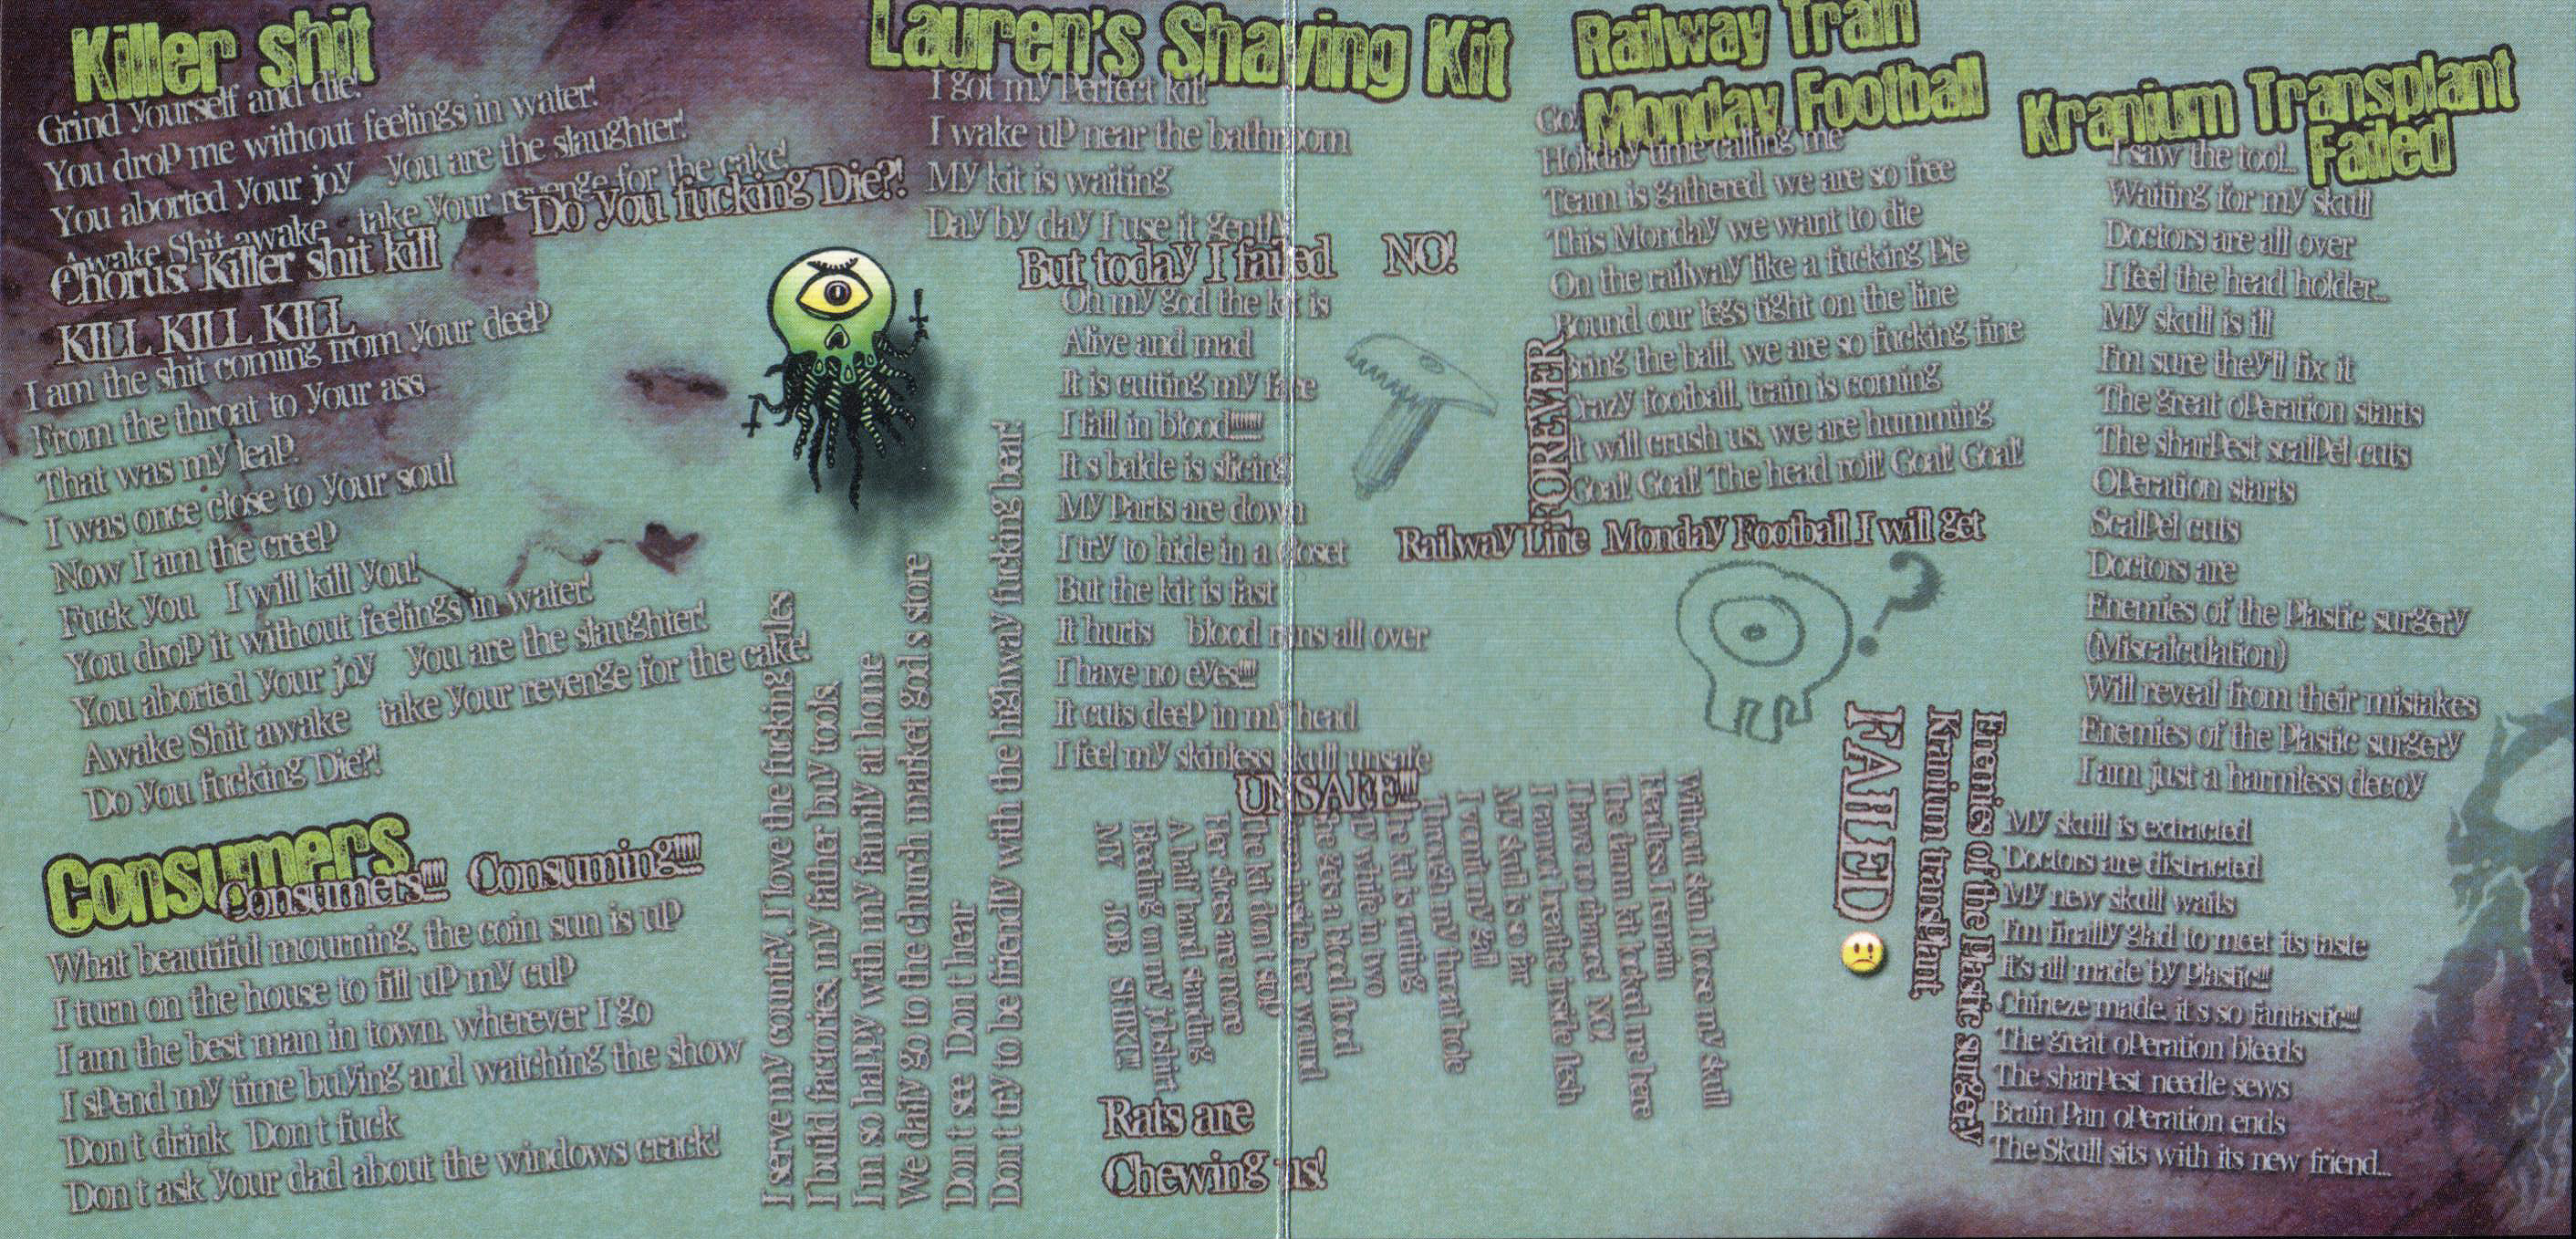 Killer shit
Grind Yourself and die!
You drop me without feelings in water!
You aborted Your joy You are the slaughter!
Awake Shit awake take Your revenge for the cake!
Do You fucking Die?!
Chorus: Killer shit kill
KILL KILL KILL
I am the shit coming from Your deep
From the throat to Your ass
That was my leap.
I was once close to Your soul
Now I am the creep
Fuck You I will kill You!
You drop it without feelings in water!
You aborted Your joy You are the slaughter!
Awake Shit awake take Your revenge for the cake!
Do You fucking Die?!
Consumers
Consumers!!!! Consuming!!!!
What beautiful mourning, the coin sun is up
I turn on the house to fill up my cup
I am the best man in town, wherever I go
I spend my time buying and watching the show
Don t drink Don t fuck
Don t ask Your dad about the windows crack!
I serve my country, I love the fucking lies
I build factories, my father buy tools,
I m so happy with my family at home
We daily go to the church market god s store
Don t see Don t hear
Don t try to be friendly with the highway fucking bear!
Lauren's Shaving Kit
I got my Perfect kit!
I wake up near the bathroom
My kit is waiting
Day by day I use it gently
But today I failed NO!
Oh my god the kit is
Alive and mad
It is cutting my face
I fall in blood!!!!!!
It s balde is slicing
My Parts are down
I try to hide in a closet
But the kit is fast
It hurts blood runs all over
I have no eyes!!!!
It cuts deep in my head
I feel my skinless skull unsafe
UNSAFE!!!
Without skin I loose my skull
Headless I remain
The damn kit locked me here
I have no chance! NO!
I cannot breathe inside flesh
My skull is so far
I vomit my gall
Through my throat hole
The kit is cutting
My white in two
She gets a blood flood
inside her wound
The kit don t stop
Her slices are more
A half hand standing
Bleeding on my jobshirt
MY JOB SHIRT!!
Rats are
Chewing us!
Railway Train
Monday Football
Go!
Holiday time calling me
Team is gathered we are so free
This Monday we want to die
On the railway like a fucking Pie
Bound our legs tight on the line
Bring the ball, we are so fucking fine
Crazy football, train is coming
It will crush us, we are humming
Goal! Goal! The head roll! Goal! Goal!
FOREVER
Railway Line Monday Football I will get
Kranium Transplant
Failed
I saw the tool...
Waiting for my skull
Doctors are all over
I feel the head holder...
My skull is ill
I'm sure they'll fix it
The great operation starts
The sharpest scalpel cuts
Operation starts
Scalpel cuts
Doctors are
Enemies of the Plastic surgery
(Miscalculation)
Will reveal from their mistakes
Enemies of the Plastic surgery
I am just a harmless decoy
Enemies of the Plastic surgery
Kranium transplant
FAILED
My skull is extracted
Doctors are distracted
My new skull waits
I'm finally glad to meet its taste
It's all made by Plastic!!!
Chineze made, it s so fantastic!!!!
The great operation bleeds
The sharpest needle sews
Brain Pan operation ends
The Skull sits with its new friend...